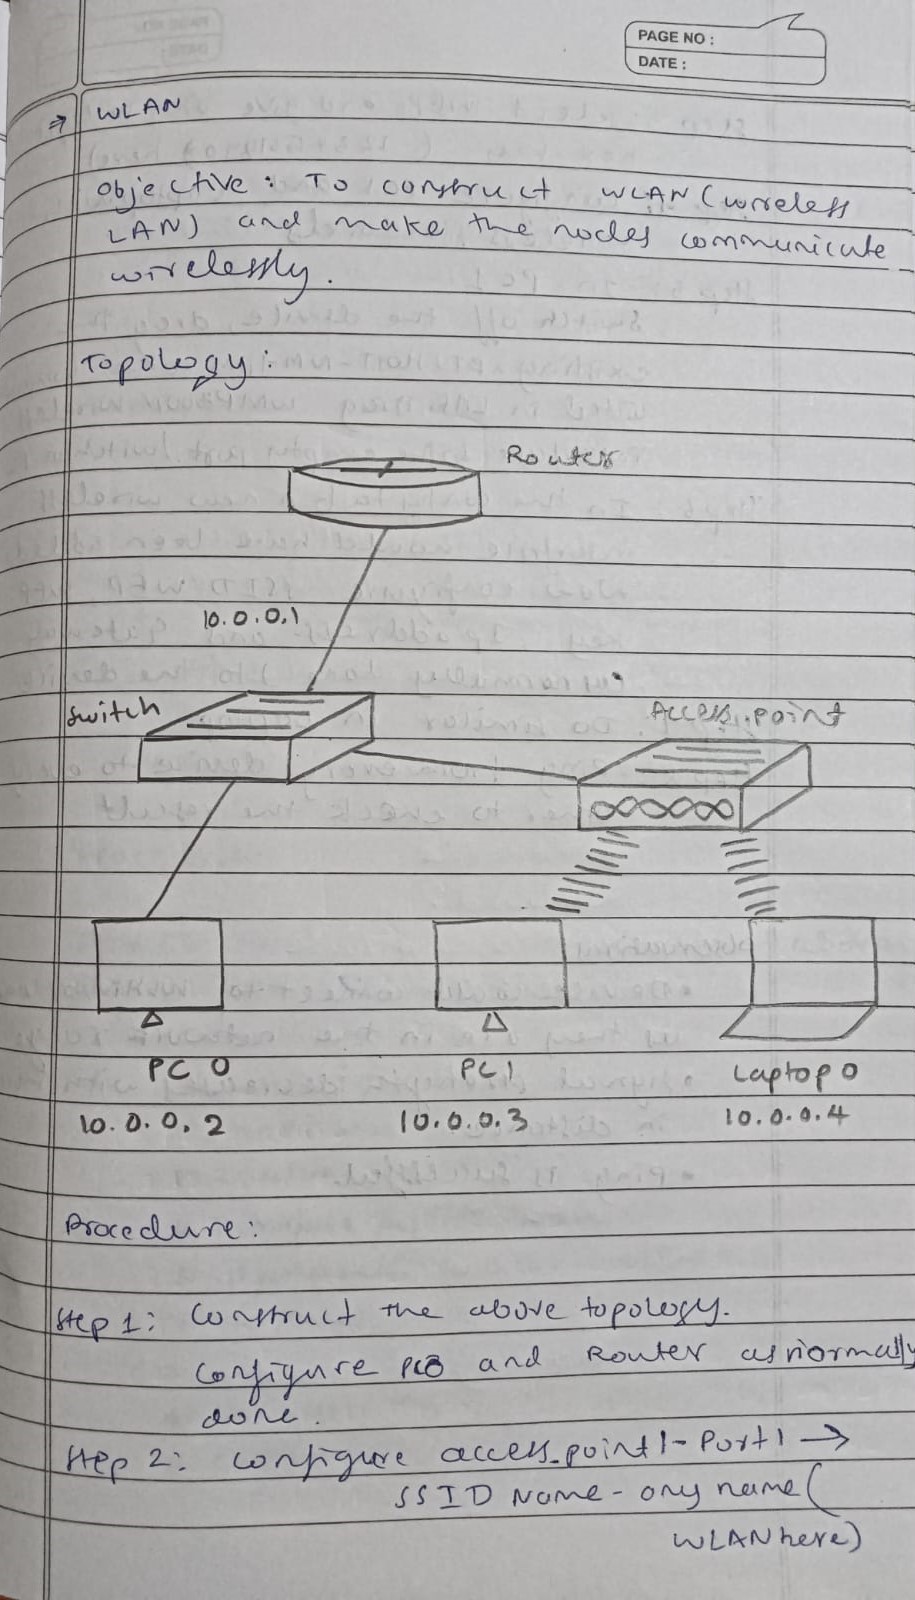 PAGE NO :
DATE :
→ WLAN
Objective : To construct WLAN (wireless
LAN) and make the nodes communicate
wirelessly.
Topology :
Router
10.0.0.1
Switch
Access-point
PC 0
PC1
Laptop 0
10.0.0.2
10.0.0.3
10.0.0.4
Procedure :
Step 1: Construct the above topology.
Configure PC0 and Router as normally
done.
Step 2: configure access-point1 - Port 1 →
SSID Name - any name (
WLAN here)